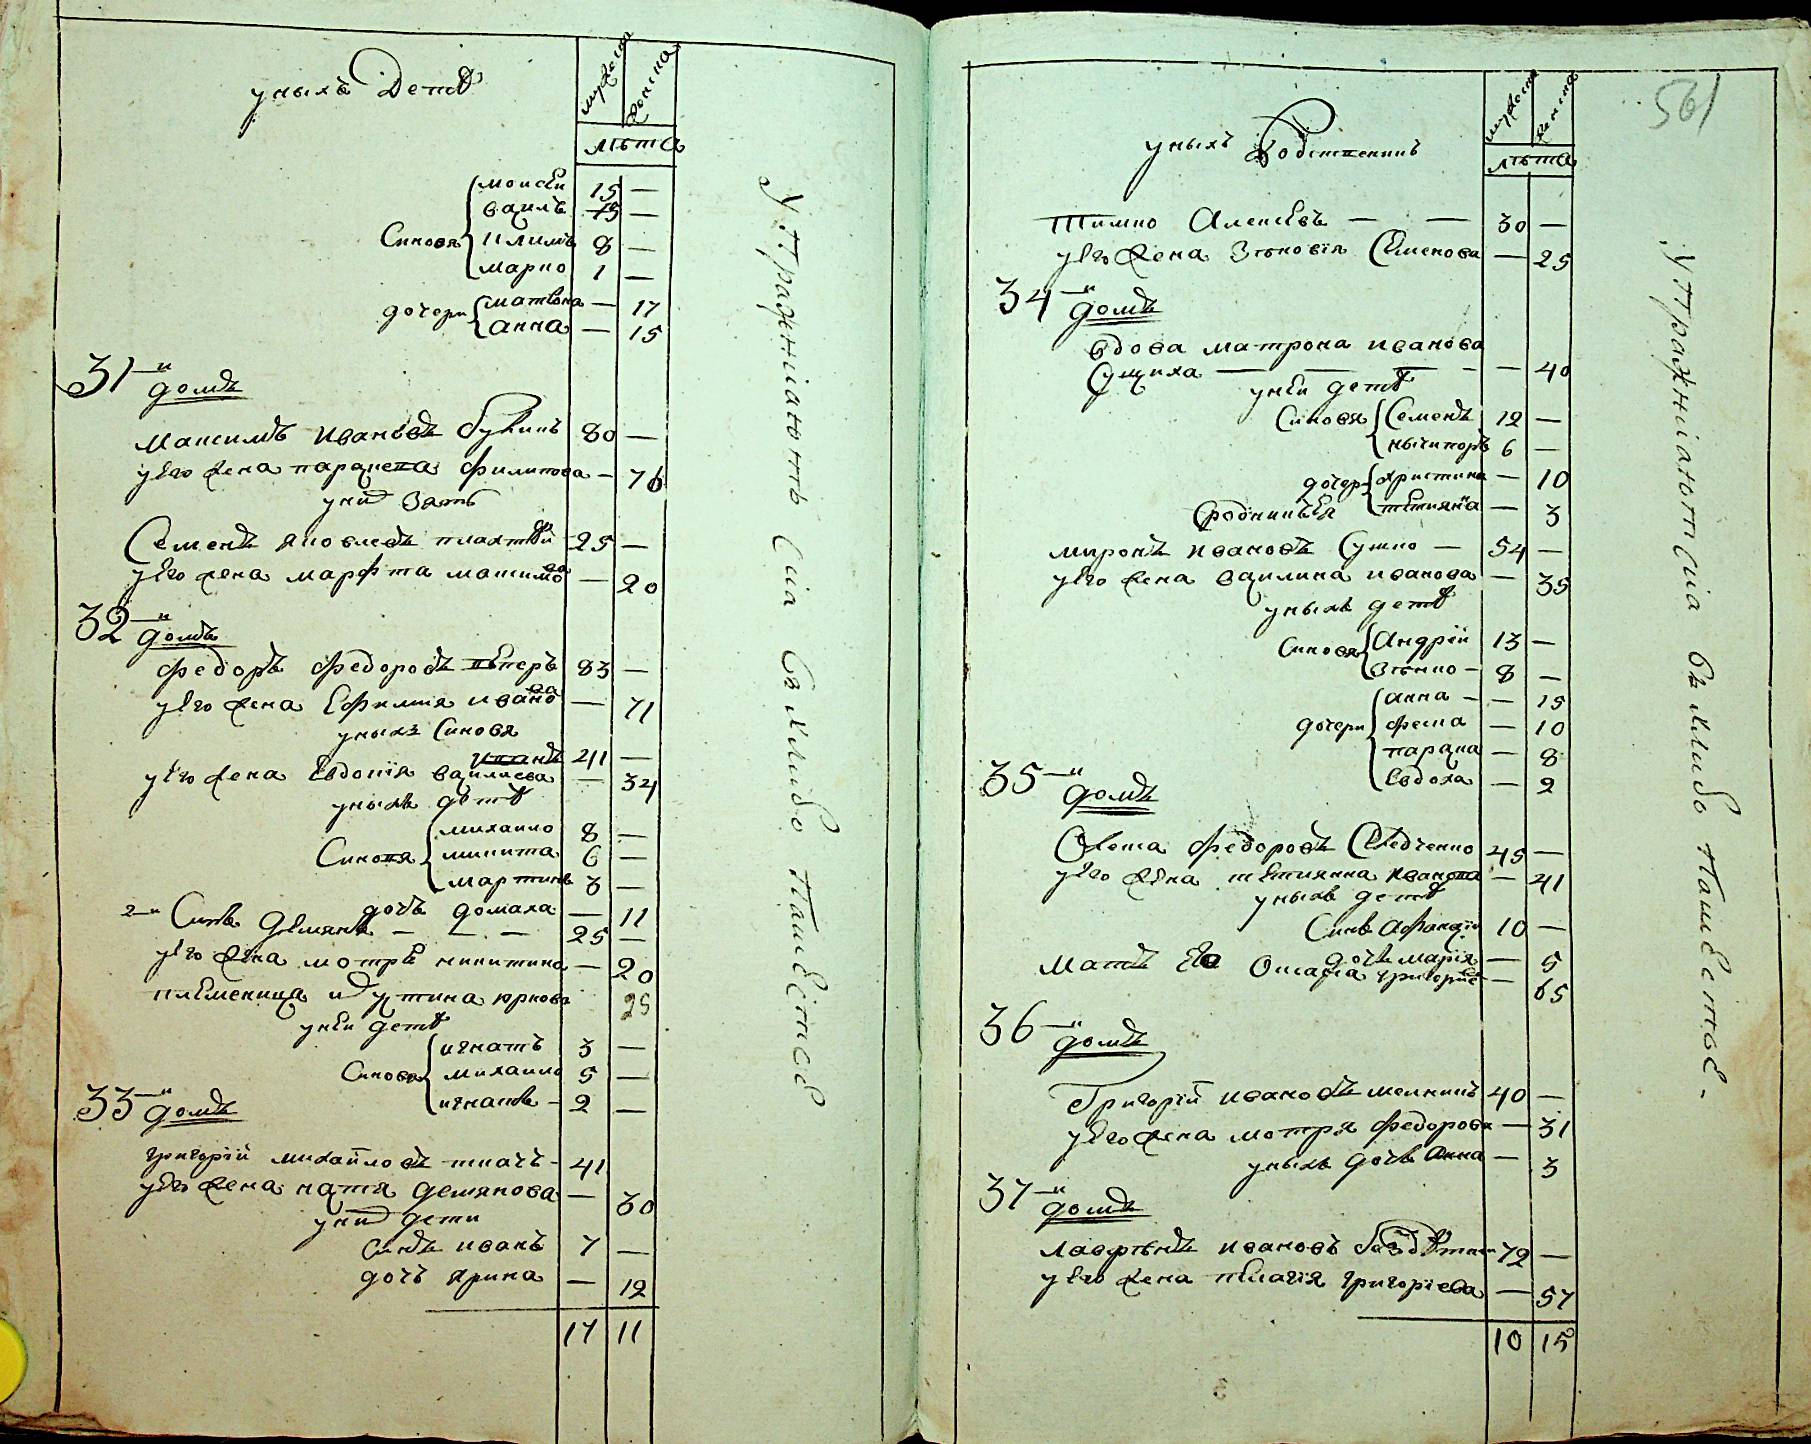 у них Дети
мужеска
женска
лѣта
Синовя
моисей 15 —
васил 15 —
клим 8 —
марко 1 —
дочери
матрона — 17
анна — 15
31-й домъ
максимъ ивановъ 80 —
у его жена параскева филипова — 76
у них зять
Семенъ яковлевъ 25 —
у его жена марфта максимова — 20
32-й домъ
федоръ федоровъ 83 —
у его жена Ефимия иванова — 71
у нихъ Синовя
41 —
у его жена Евдокія василиева — 34
у нихъ дети
Синовя
михаило 8 —
микита 6 —
мартинъ 3 —
дочь домаха — 11
2-й Синъ демянъ — — — 25 —
у его жена мотря никитина — 20
племеница устина юркова 25
у ней дети
Синовя
игнатъ 3 —
михаило 5 —
игнатъ — 2 —
33-й домъ
григорій михайловъ ткачъ — 41
у его жена катя демянова — 30
у них дети
синъ иванъ 7 —
дочъ ярина — 12
17 11
Упражніаютсіа въ хлибопашестве
561
у нихъ
мужеска
женска
лѣта
Тимко Алексѣевъ — — 30 —
у его жена Зѣновія Семенова — 25
34-й домъ
вдова матрона иванова
Сущиха — — — — 40
у ней дети
Синовя
Семенъ 12 —
ничипоръ 6 —
дочери
христина — 10
тетияна — 3
миронъ ивановъ Сушко — 54 —
у его жена василина иванова — 35
у нихъ дети
Синовя
Андрій 13 —
Зѣнко — 8 —
дочери
анна — — 15
феска — 10
параска — 8
Евдоха — 2
35-й домъ
федоровъ 45 —
у его жена тетиянна иванова — 41
у нихъ дети
Синъ Афанасій 10 —
дочъ марія — 5
мать его григорие — 65
36-й домъ
Григорій ивановъ мелникъ 40 —
у его жена мотря федорова — 31
у нихъ дочъ Анна — 3
37-й домъ
лаврѣнъ ивановъ 72 —
у его жена пелагія григоріева — 57
10 15
Упражніаютсіа въ хлибопашестве.